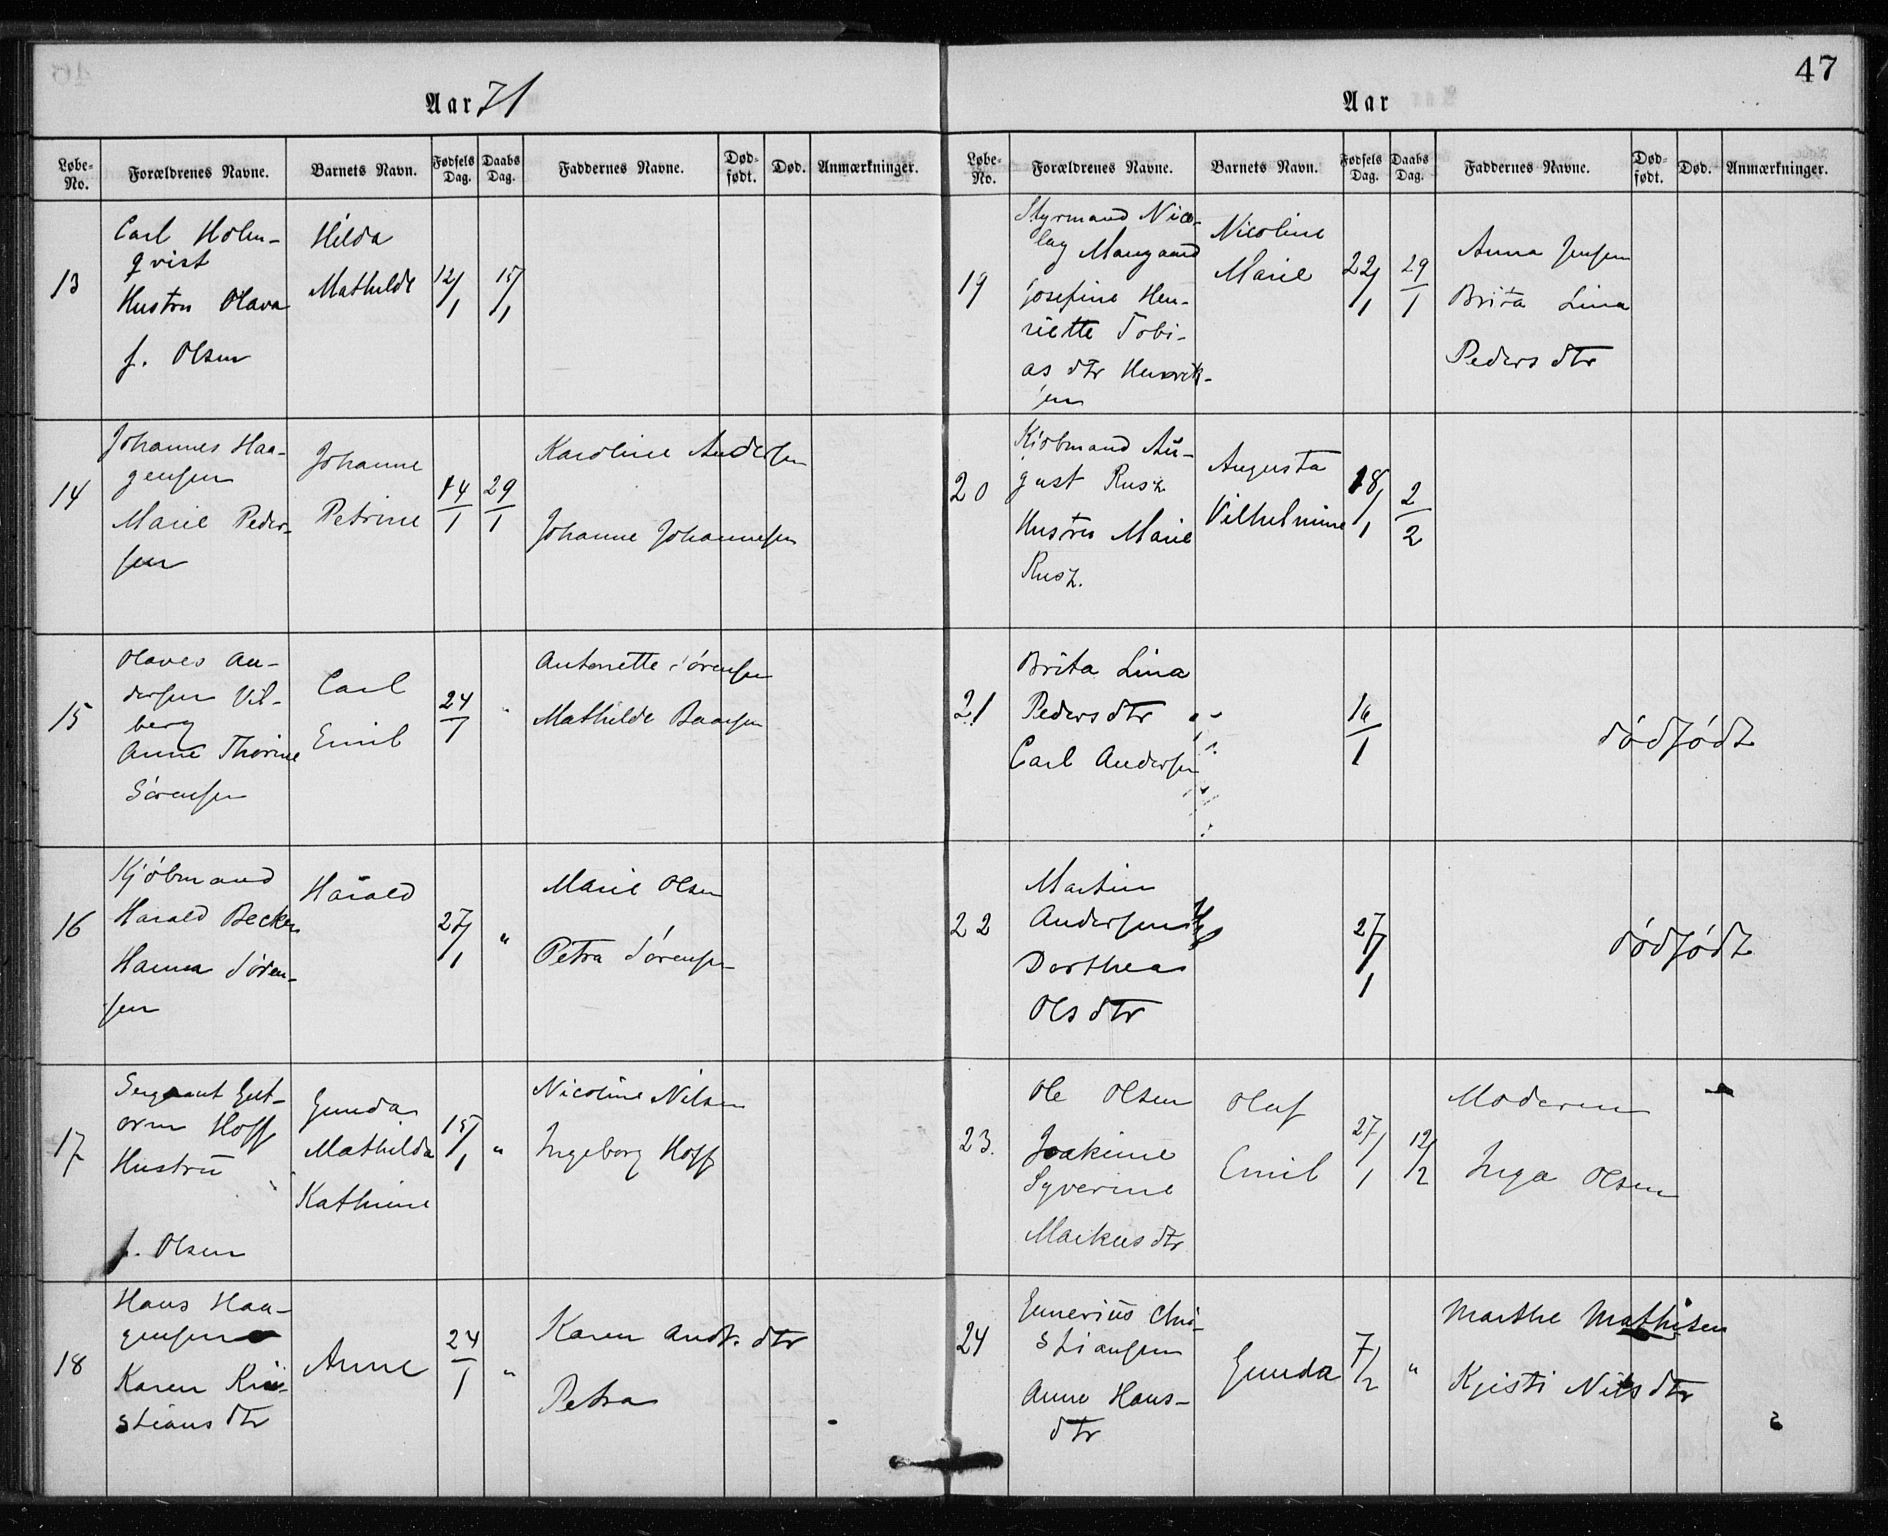 47
Aar 71
Løbe-No. Forældrenes Navne. Barnets Navn. Fødsels Dag. Daabs Dag. Faddernes Navne. Død-født. Død. Anmærkninger.
13
Carl Holm-
qvist
Hustru Olava
f. Olsen
Hilda
Mathilde
12/1
15/1
14
Johannes Haa-
gensen
Marie Peder-
sen
Johanne
Petrine
14/1
29/1
Karoline Andersen
Johanne Johannesen
15
Olaves An-
dersen Vil-
berg
Anne Thorine
Sørensen
Carl
Emil
24/1
"
Antonette Sørensen
Mathilde Baansen
16
Kjøbmand
Harald Becken
Hanna Søren-
sen
Harald
27/1
"
Marie Olsen
Petra Sørensen
17
Sergeant Gut-
orm Hoff
Hustru
f. Olsen
Gunda
Mathilda
Kathrine
15/1
"
Nicoline Nilsen
Ingeborg Hoff
18
Hans Haa-
gensen
Karen Kri-
stians dtr
Anne
24/1
"
Karen Andr. dtr
Petra
Aar
Løbe-No. Forældrenes Navne. Barnets Navn. Fødsels Dag. Daabs Dag. Faddernes Navne. Død-født. Død. Anmærkninger.
19
Styrmand Nico-
lay Mangaard
Josefine Hen-
riette Tobi-
as dtr Henrik-
sen
Nicoline
Marie
22/1
29/1
Anna Jensen
Brita Lina
Peders dtr
20
Kjøbmand Au-
gust Rusz
Hustru Marie
Rusz.
Augusta
Vilhelmine
18/1
2/2
21
Brita Lina
Peders dtr
Carl Andersen
16/1
dødfødt
22
Martin
Andersen
Dorthea
Ols dtr
27/1
dødfødt
23.
Ole Olsen
Joakime
Syverine
Markus dtr
Oluf
Emil
27/1
12/2
Moderen
Inga Olsen
24
Gunerius Chri-
stiansen
Anne Hans-
dtr
Gunda
7/2
"
Marthe Mathisen
Kjisti Nils dtr